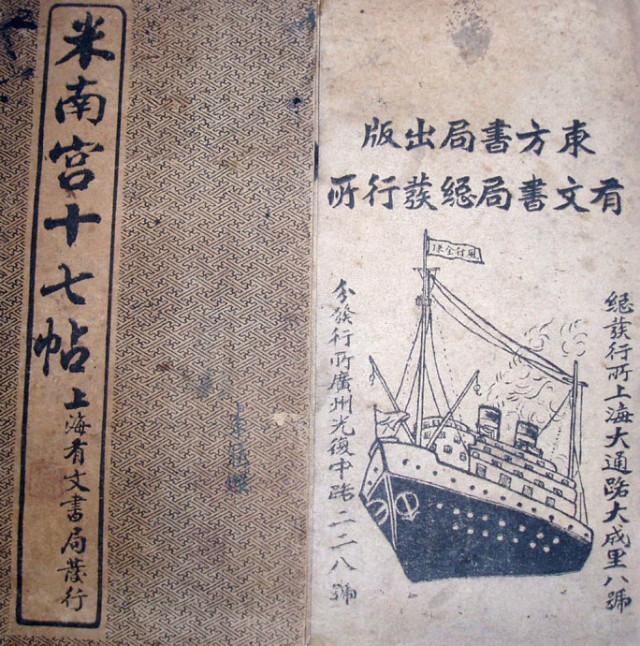 米南宮十七帖
上海有文書局發行
東方書局出版
有文書局總發行所
總發行所上海大通路大成里八號
分發行所廣州光復中路二二八號